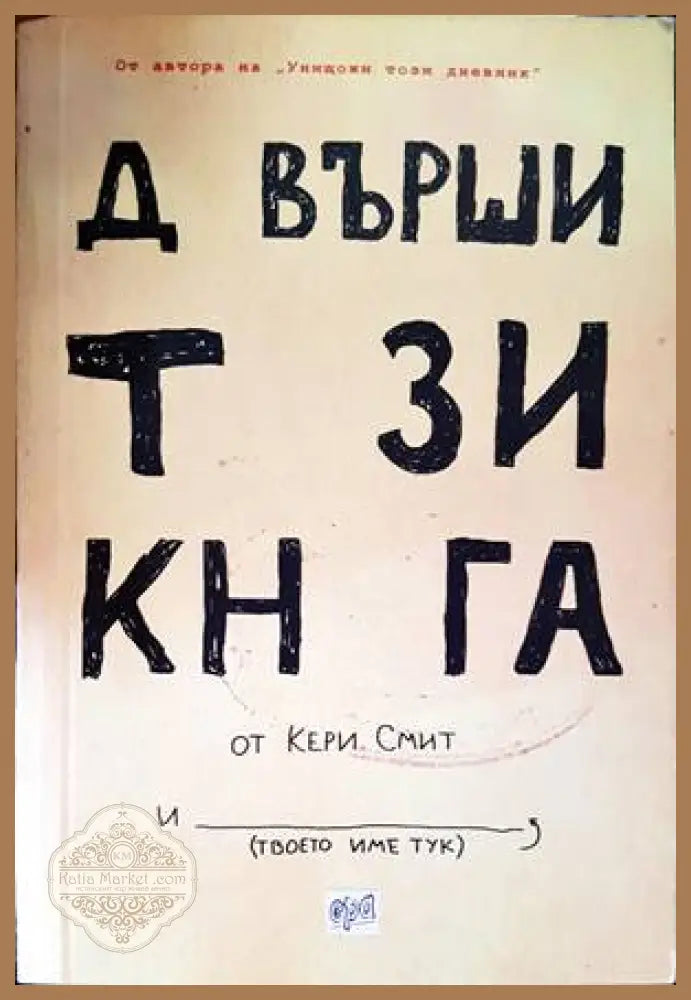 От автора на „Унищожи този дневник“
Д ВЪРШИ
Т ЗИ
КН ГА
ОТ КЕРИ СМИТ
И
(ТВОЕТО ИМЕ ТУК)
KM
Katia Market .com
ера